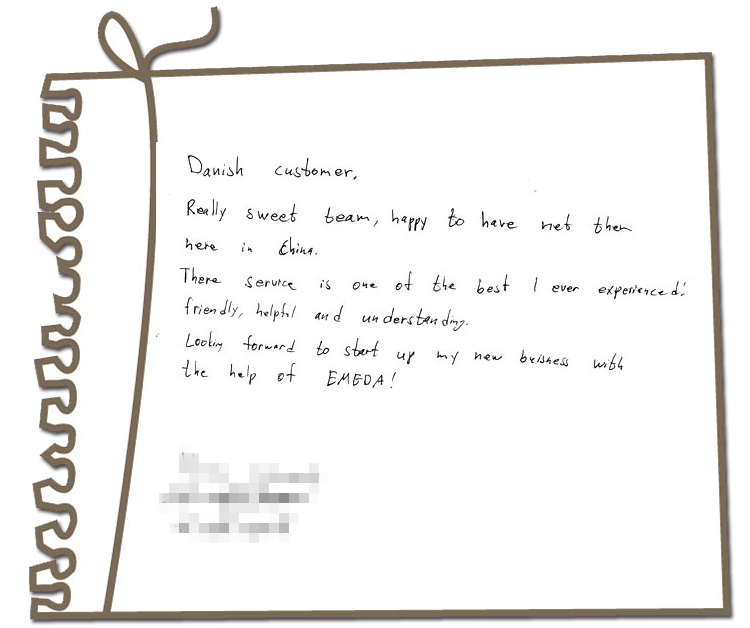 Danish customer,
Really sweet team, happy to have met them
here in China.
There service is one of the best I ever experienced:
friendly, helpful and understanding.
Looking forward to start up my new buisness with
the help of EMEDA!